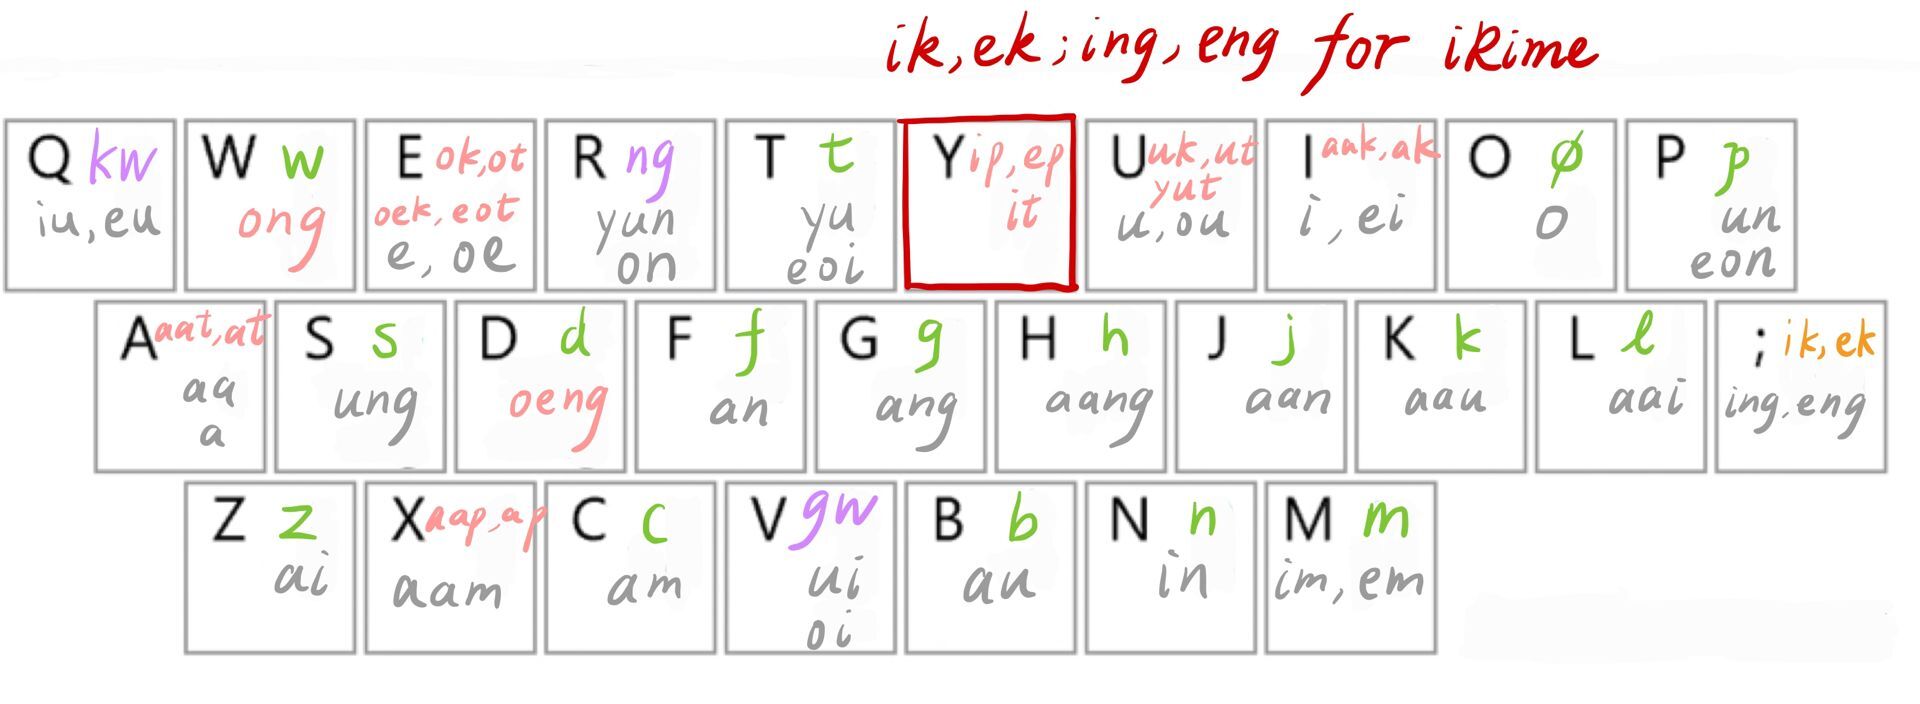 ik,ek;ing,eng for iRime
Q kw
iu,eu
W w
ong
E ok,ot
oek,eot
e,oe
R ng
yun
on
T t
yu
eoi
Y ip,ep
it
U uk,ut
yut
u,ou
I aak,ak
i,ei
O ø
o
P p
un
eon
A aat,at
aa
a
S s
ung
D d
oeng
F f
an
G g
ang
H h
aang
J j
aan
K k
aau
L l
aai
; ik,ek
ing,eng
Z z
ai
X aap,ap
aam
C c
am
V gw
ui
oi
B b
au
N n
in
M m
im,em